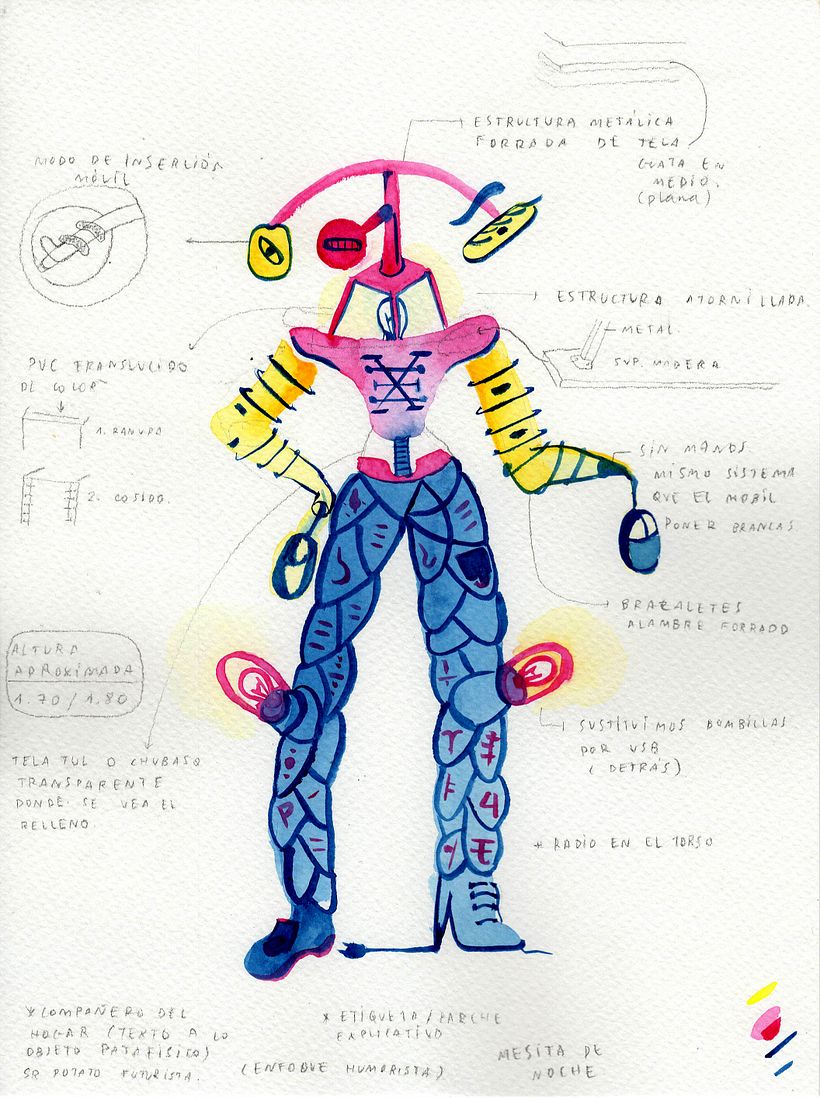 ESTRUCTURA METÁLICA
FORRADA DE TELA
GUATA EN
MEDIO.
(plana)
MODO DE INSERCIÓN
MÓVIL
ESTRUCTURA ATORNILLADA.
METAL.
SUP. MADERA.
PVC TRANSLUCIDO
DE COLOR
1. RANURA
2. COSIDO.
SIN MANOS
MISMO SISTEMA
QUE EL MOBIL
PONER BRANCAS
BRAZALETES
ALAMBRE FORRADO
ALTURA
APROXIMADA
1.70 / 1.80
SUSTITUIMOS BOMBILLAS
POR USB
(DETRÁS)
TELA TUL O CHUBASQ
TRANSPARENTE
DONDE SE VEA EL
RELLENO.
* RADIO EN EL TORSO
* COMPAÑERO DEL
HOGAR (TEXTO A LO
OBJETO PATAFISICO)
SR POTATO FUTURISTA.
* ETIQUETA / PARCHE
EXPLICATIVO
(ENFOQUE HUMORISTA)
MESITA DE
NOCHE.